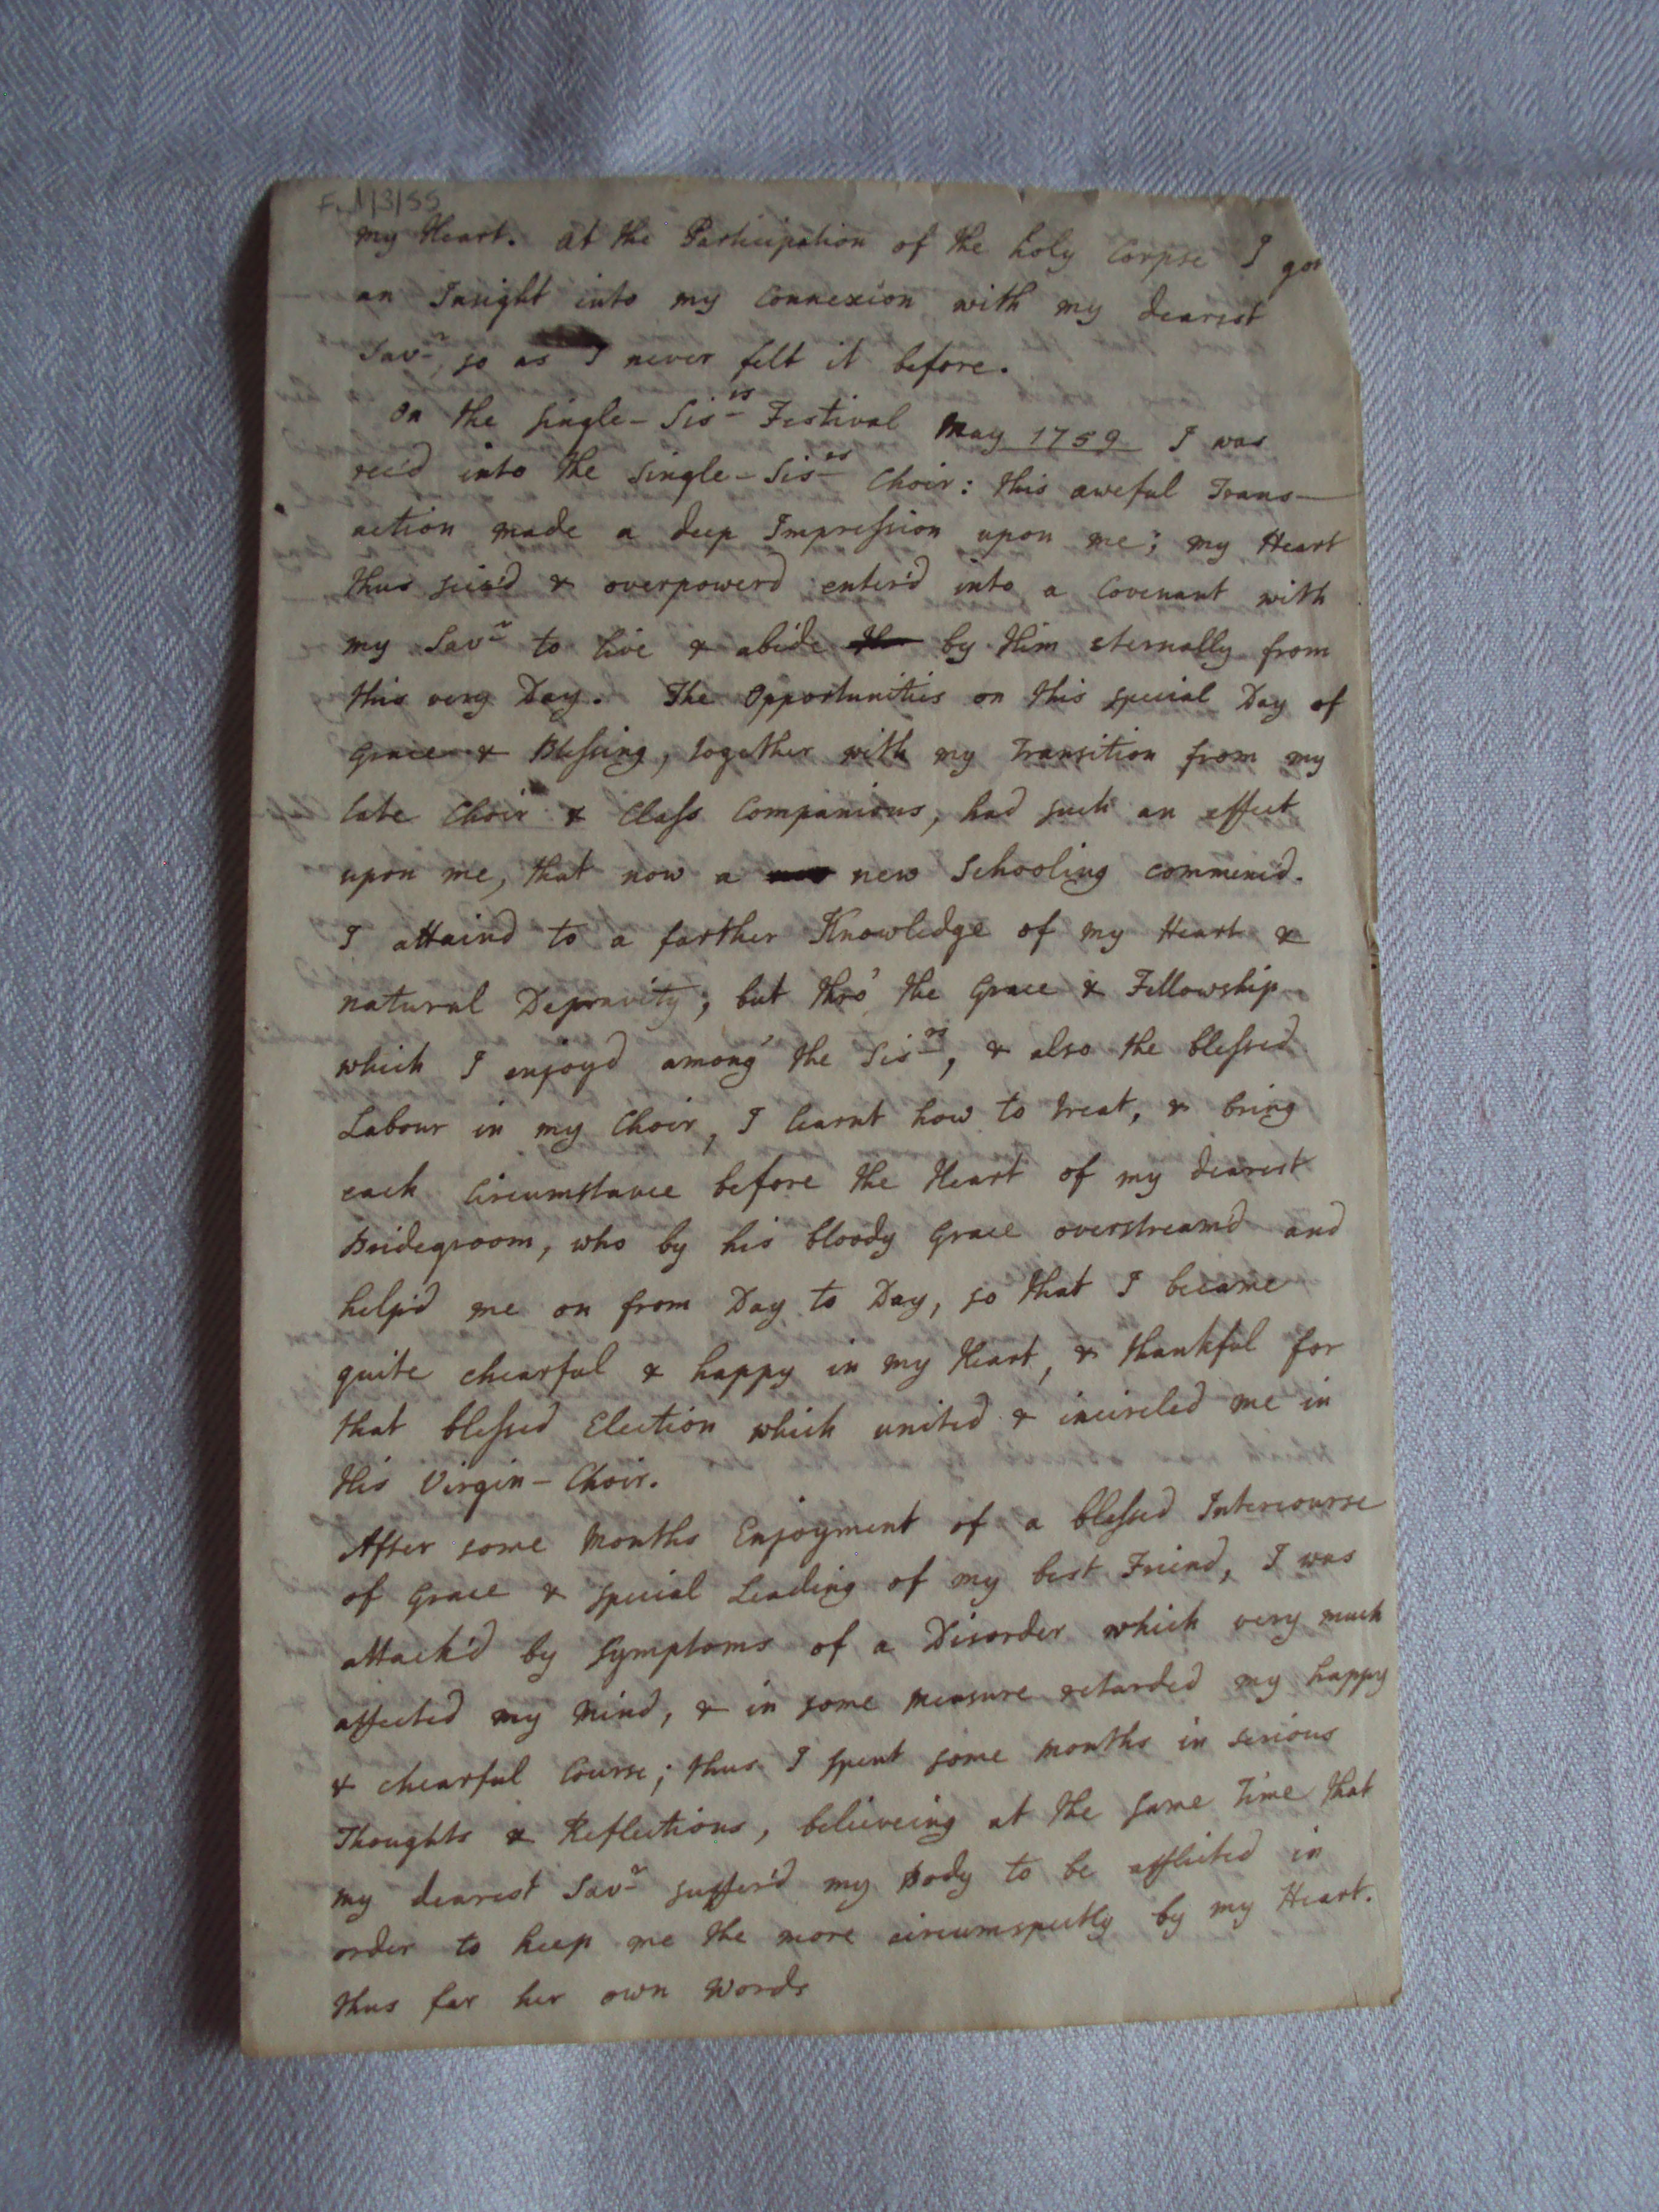 F.N/3/55
my Heart. at the Participation of the holy Corpse I got
an Insight into my Connexion with my dearest
Sav.r, so as I never felt it before.
On the Single-Sis.rs Festival May 1759 I was
rec'd into the Single-Sis.rs Choir: this aweful Trans-
action made a deep Impression upon me; my Heart
thus seiz'd & overpowerd enter'd into a Covenant with
my Sav.r to live & abide by Him eternally from
this very Day. The Opportunities on this special Day of
Grace & Blessing, together with my Transition from my
late Choir & Class Companions, had such an effect
upon me, that now a new Schooling commenc'd.
I attaind to a farther Knowledge of my Heart &
natural Depravity, but thro' the Grace & Fellowship
which I enjoyd among the Sis.rs, & also the blessed
Labour in my Choir, I learnt how to treat, & bring
each Circumstance before the Heart of my dearest
Bridegroom, who by his bloody Grace overstreamd and
help'd me on from Day to Day, so that I became
quite chearful & happy in my Heart, & thankful for
that blessed Election which united & incircled me in
His Virgin-Choir.
After some Months Enjoyment of a blessed Intercourse
of Grace & Special Leading of my best Friend, I was
attack'd by Symptoms of a Disorder which very much
affected my Mind, & in some Measure retarded my happy
& chearful Course; thus I spent some Months in serious
Thoughts & Reflections, believeing at the same Time that
my dearest Sav.r suffer'd my Body to be afflicted in
order to keep me the more circumspectly by my Heart.
thus far her own Words